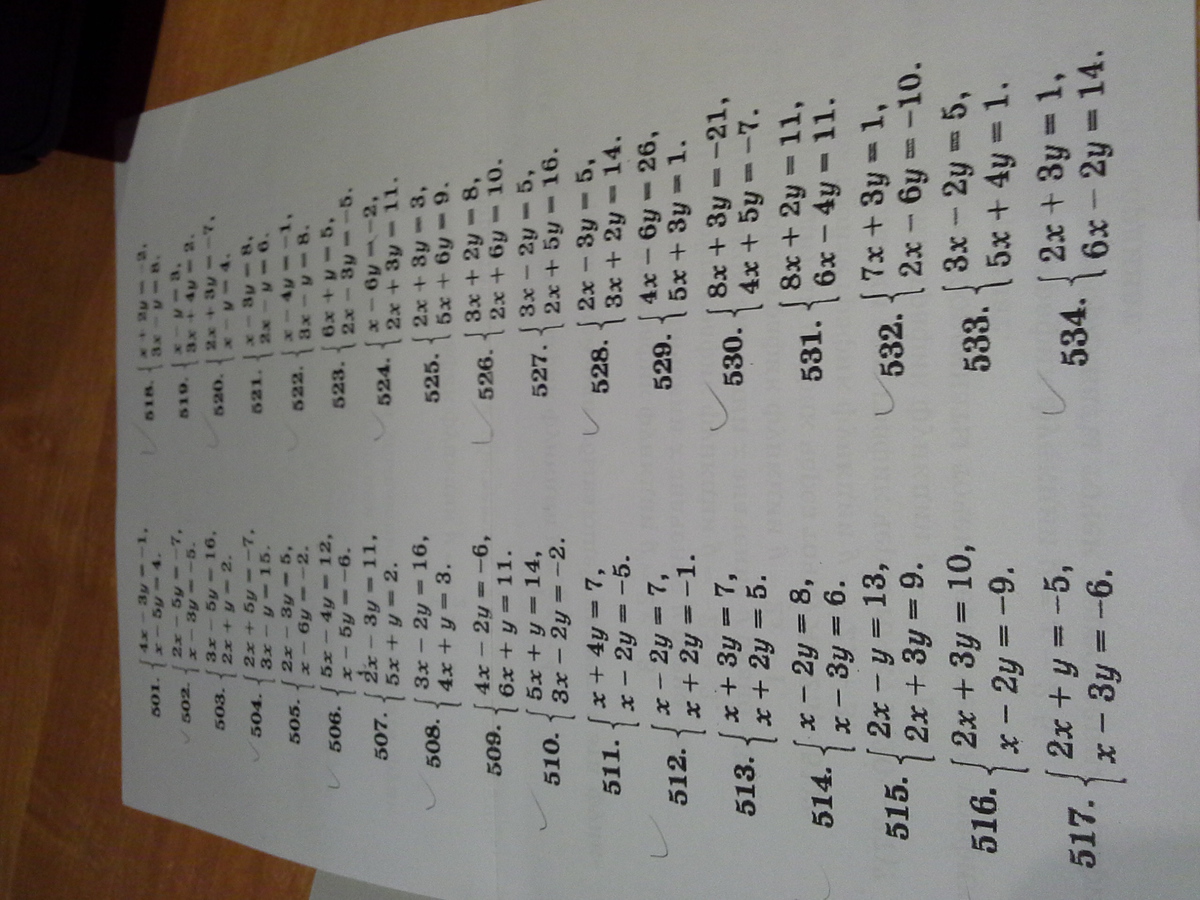 501. { 4x − 3y = −1,
x − 5y = 4.
502. { 2x − 5y = −7,
x − 3y = −5.
503. { 3x − 5y = 16,
2x + y = 2.
504. { 2x + 5y = −7,
3x − y = 15.
505. { 2x − 3y = 5,
x − 6y = −2.
506. { 5x − 4y = 12,
x − 5y = −6.
507. { 2x − 3y = 11,
5x + y = 2.
508. { 3x − 2y = 16,
4x + y = 3.
509. { 4x − 2y = −6,
6x + y = 11.
510. { 5x + y = 14,
3x − 2y = −2.
511. { x + 4y = 7,
x − 2y = −5.
512. { x − 2y = 7,
x + 2y = −1.
513. { x + 3y = 7,
x + 2y = 5.
514. { x − 2y = 8,
x − 3y = 6.
515. { 2x − y = 13,
2x + 3y = 9.
516. { 2x + 3y = 10,
x − 2y = −9.
517. { 2x + y = −5,
x − 3y = −6.
518. { x + 2y = −2,
3x − y = 8.
519. { x − y = 3,
3x + 4y = 2.
520. { 2x + 3y = −7,
x − y = 4.
521. { x − 3y = 8,
2x − y = 6.
522. { x − 4y = −1,
3x − y = 8.
523. { 6x + y = 5,
2x − 3y = −5.
524. { x − 6y = −2,
2x + 3y = 11.
525. { 2x + 3y = 3,
5x + 6y = 9.
526. { 3x + 2y = 8,
2x + 6y = 10.
527. { 3x − 2y = 5,
2x + 5y = 16.
528. { 2x − 3y = 5,
3x + 2y = 14.
529. { 4x − 6y = 26,
5x + 3y = 1.
530. { 8x + 3y = −21,
4x + 5y = −7.
531. { 8x + 2y = 11,
6x − 4y = 11.
532. { 7x + 3y = 1,
2x − 6y = −10.
533. { 3x − 2y = 5,
5x + 4y = 1.
534. { 2x + 3y = 1,
6x − 2y = 14.